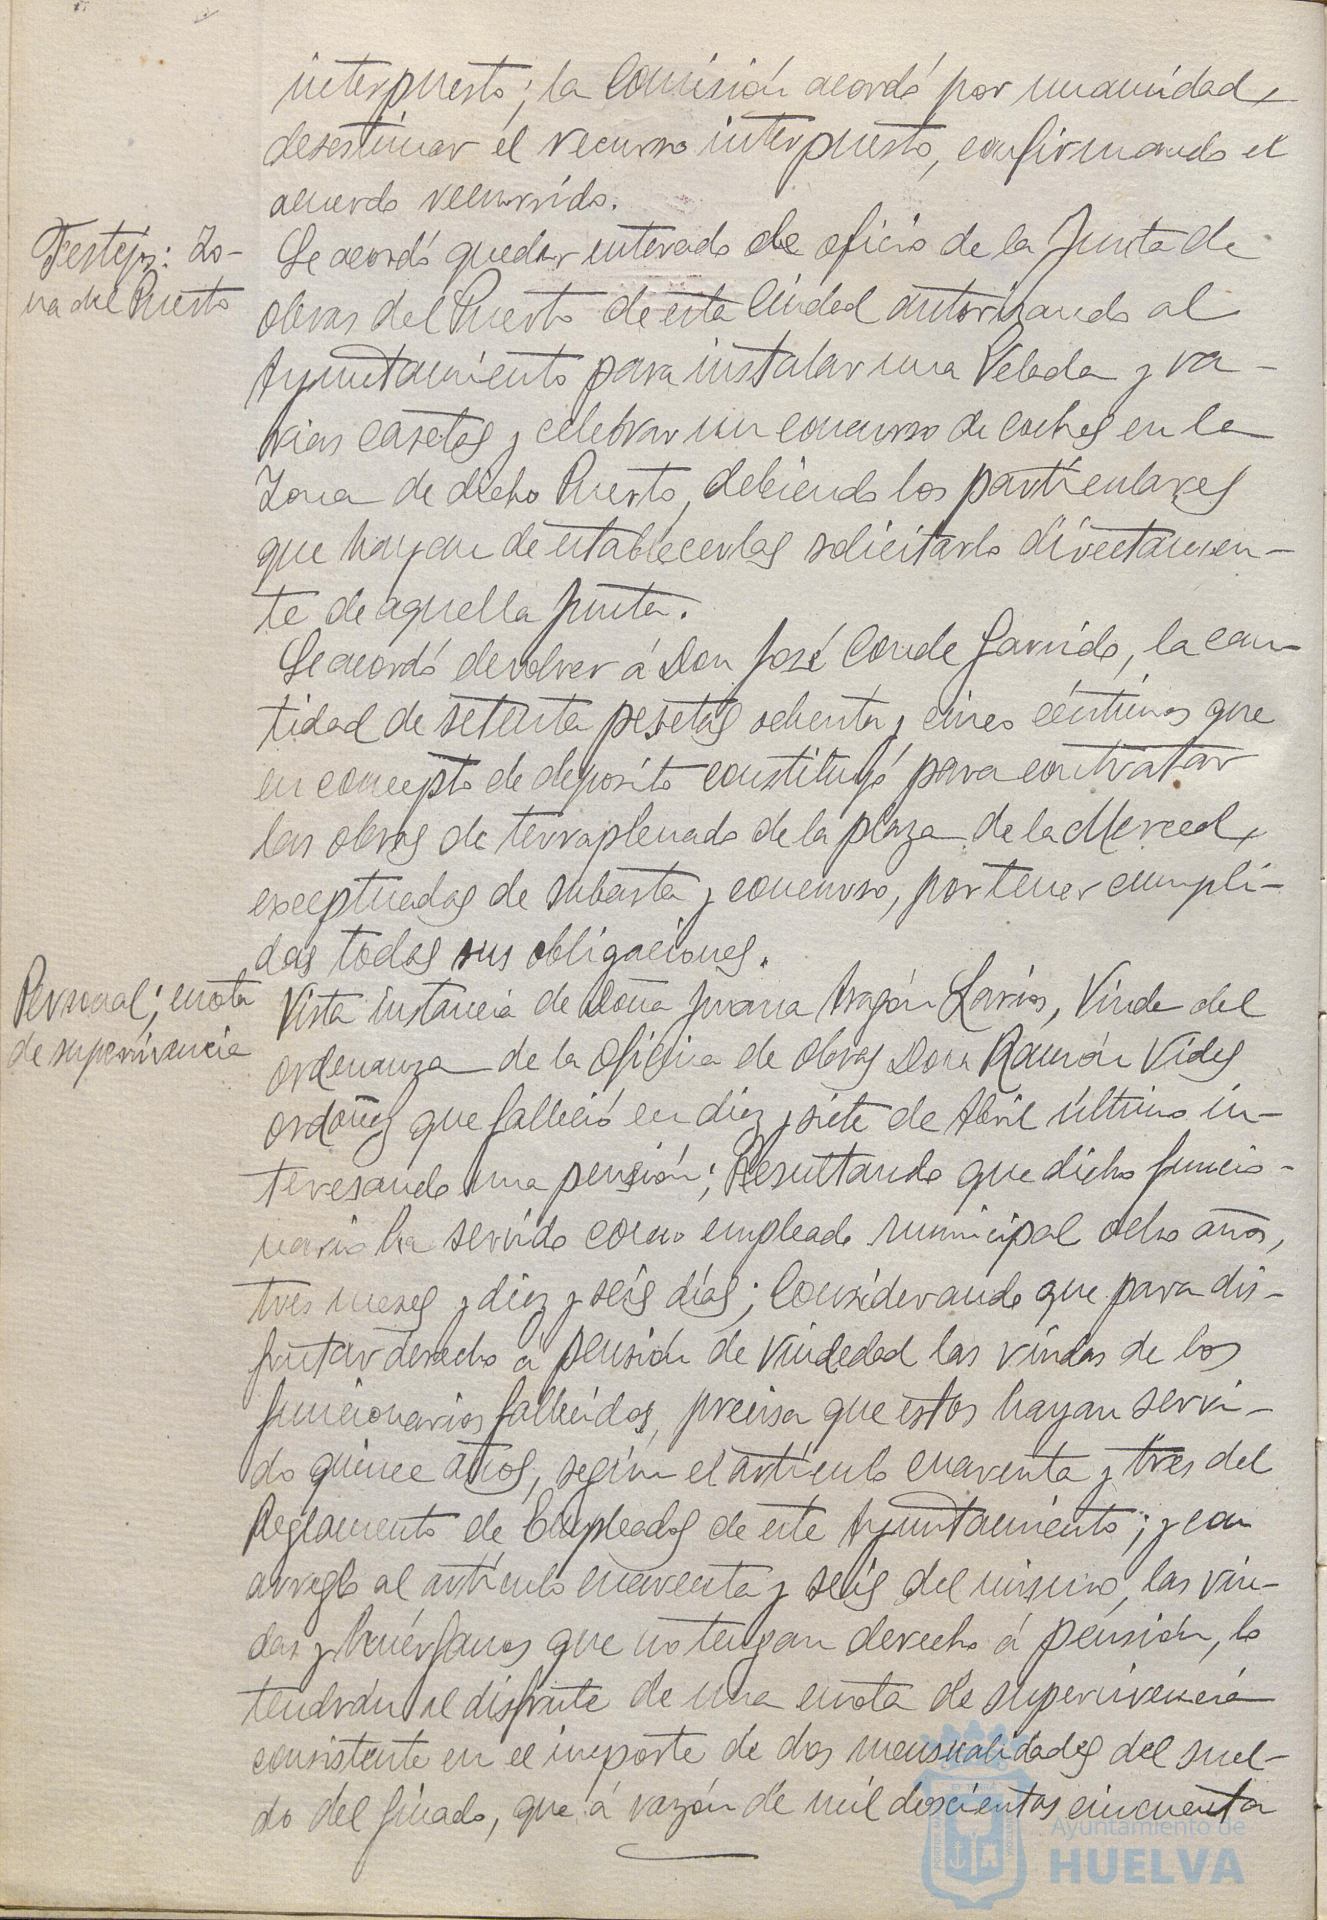 interpuesto; la Comisión acordó por unanimidad
desestimar el recurso interpuesto, confirmando el
acuerdo recurrido.
Festejos: Zo-
na del Puerto
Se acordó quedar enterado de oficio de la Junta de
obras del Puerto de esta Ciudad autorizando al
Ayuntamiento para instalar una Velada y va-
rias casetas y celebrar un concurso de coches en la
Zona de dicho Puerto, debiendo los particulares
que hayan de establecerlas solicitarlo directamen-
te de aquella Junta.
Se acordó devolver á Don José Conde Garrido, la can-
tidad de setenta pesetas ochenta y cinco céntimos que
en concepto de depósito constituyó para contratar
las obras de terraplenado de la plaza de la Merced,
exceptuadas de subasta y concurso, por tener cumpli-
das todas sus obligaciones.
Personal; cuota
de supervivencia
Vista instancia de Doña Juana Aragón Larios, Viuda del
ordenanza de la oficina de obras Don Ramón Vides
Ordoñez que falleció en diez y siete de Abril último in-
teresando una pensión; Resultando que dicho funcio-
nario ha servido como empleado municipal ocho años,
tres meses y diez y seis días; Considerando que para dis-
frutar derecho á pensión de viudedad las viudas de los
funcionarios fallecidos, precisa que estos hayan servi-
do quince años, según el artículo cuarenta y tres del
Reglamento de Empleados de este Ayuntamiento; y con
arreglo al artículo cuarenta y seis del mismo, las viu-
das y huérfanos que no tengan derecho á pensión, lo
tendrán al disfrute de una cuota de supervivencia
consistente en el importe de dos mensualidades del suel-
do del finado, que á razón de mil doscientas cincuenta
Ayuntamiento de
HUELVA